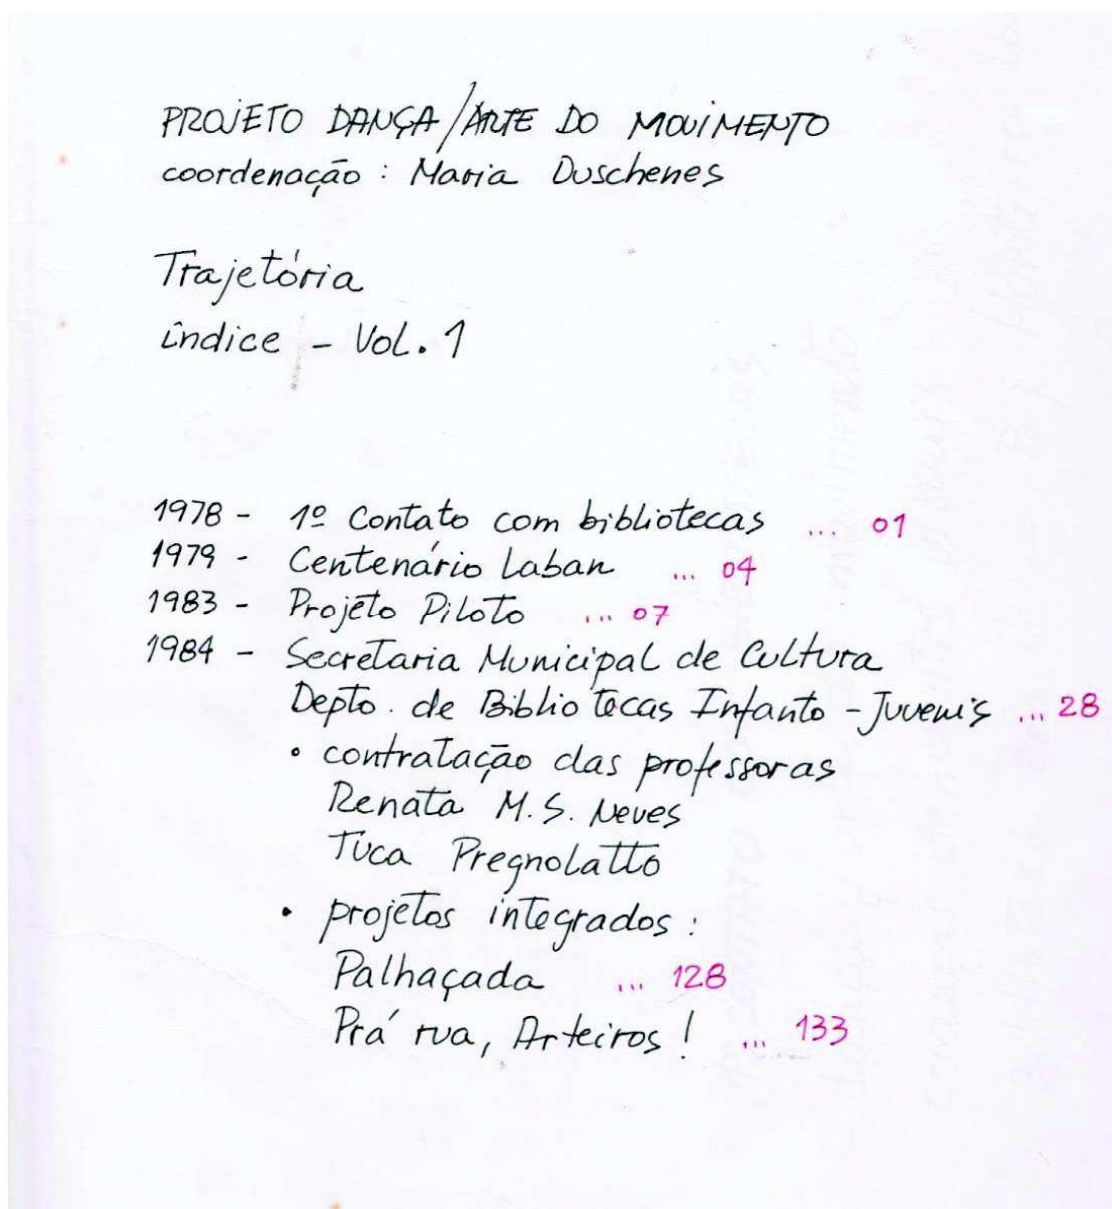 PROJETO DANÇA/ARTE DO MOVIMENTO
coordenação : Maria Duschenes
Trajetória
índice - Vol. 1
1978 - 1º Contato com bibliotecas ... 01
1979 - Centenário Laban ... 04
1983 - Projeto Piloto ... 07
1984 - Secretaria Municipal de Cultura
Depto. de Bibliotecas Infanto - Juvenis ... 28
• contratação das professoras
Renata M. S. Neves
Tuca Pregnolatto
• projetos integrados :
Palhaçada ... 128
Prá rua, Arteiros ! ... 133